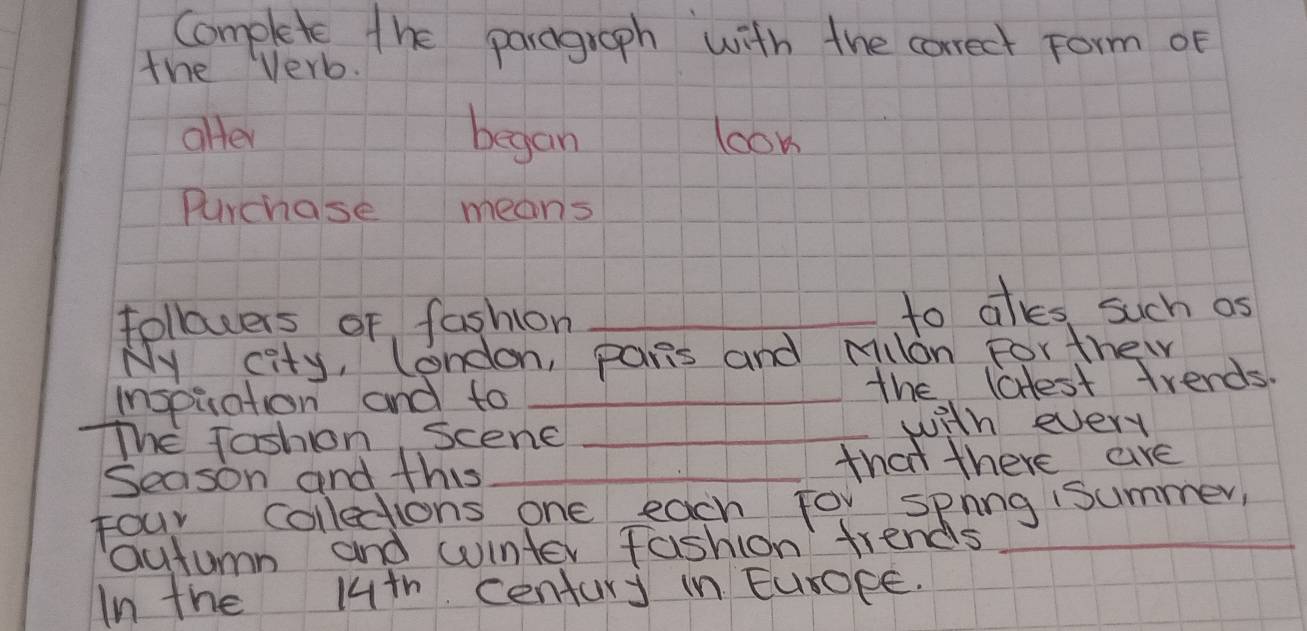 Complete the paragraph with the correct Form OF
the Verb.
alter began look
Purchase means
followers OF fashion __________ to cities such as
Ny city, london, paris and Milan For their
inspiration and to __________ the latest trends.
The Fashion Scene __________ with every
Season and this __________ that there are
Four collections one each For spring, Summer,
autumn and winter fashion trends __________
In the 14th century in Europe.